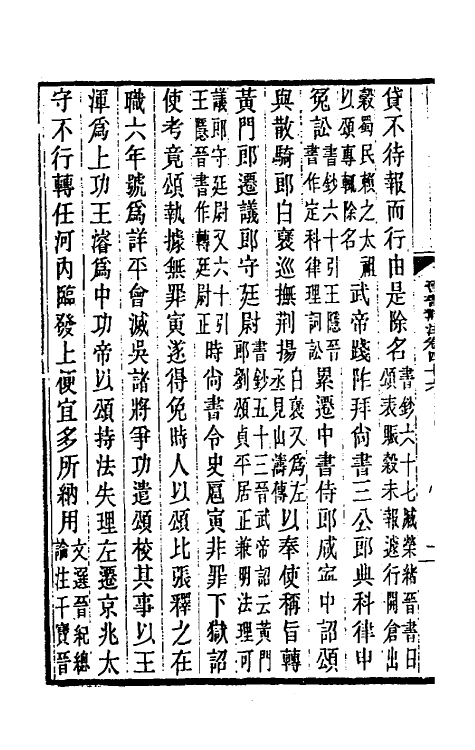 貸不待報而行由是除名書鈔六十七臧榮緒晉書曰
頌表賑穀未報遽行開倉出
穀蜀民賴之太祖
以頌專輒除名武帝踐阼拜尚書三公郎典科律申
冤訟書鈔六十引王隱晉
書作定科律理詞訟累遷中書侍郎咸寧中詔頌
與散騎郎白褒巡撫荆揚白褒又爲左
丞見山濤傳以奉使稱旨轉
黃門郎遷議郎守廷尉書鈔五十三晉武帝詔云黃門
郎劉頌貞平居正兼明法理可
議郎守廷尉又六十引
王隱晉書作轉廷尉正時尚書令史扈寅非罪下獄詔
使考竟頌執據無罪寅遂得免時人以頌比張釋之在
職六年號爲詳平會滅吳諸將爭功遣頌校其事以王
渾爲上功王濬爲中功帝以頌持法失理左遷京兆太
守不行轉任河內臨發上便宜多所納用文選晉紀總
論注干寶晉
二